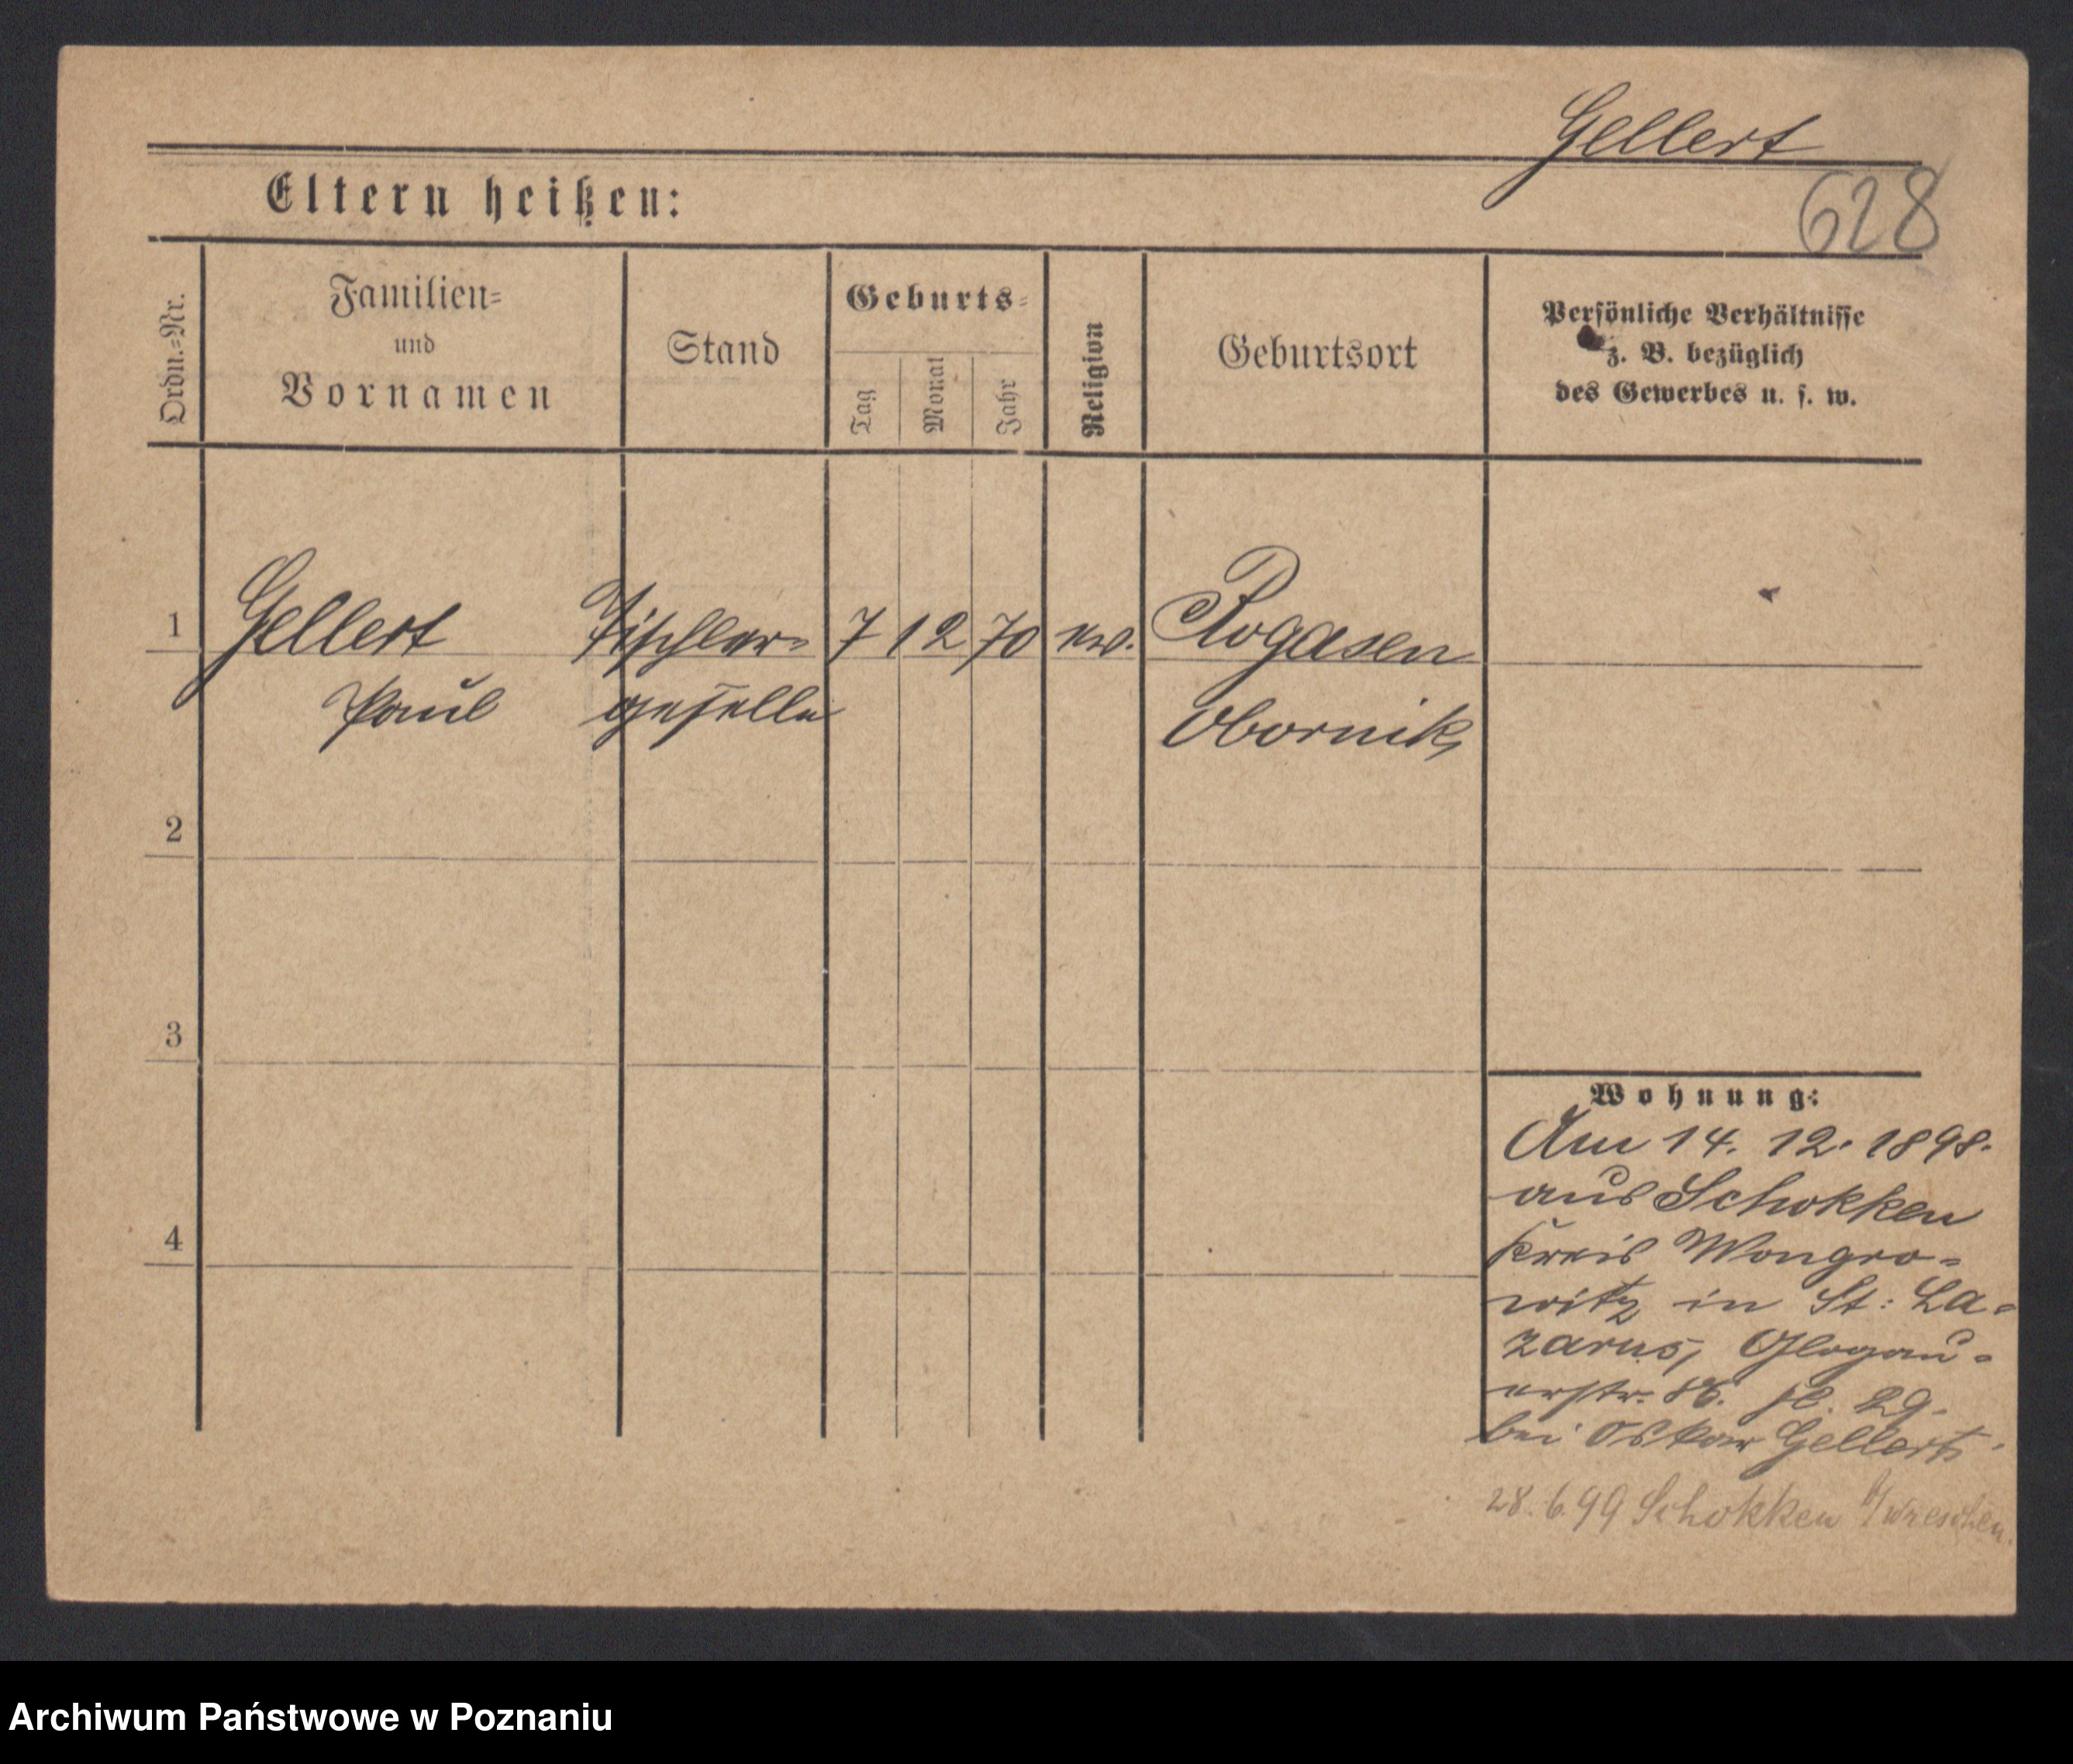 Gellert
628
Eltern heißen:
Ordn.=Nr.
Familien=
und
Vornamen
Stand
Geburts=
Tag
Monat
Jahr
Religion
Geburtsort
Persönliche Verhältnisse
z. B. bezüglich
des Gewerbes u. s. w.
1 Gellert Tischler= 7 12 70 ev. Rogasen
Paul geselle Obornik
2
3
4
Wohnung:
Am 14. 12. 1898.
aus Schokken
Kreis Wongro=
witz in St: La=
zarus, Glogau=
erstr. 86. 29.
bei Oskar Gellert
28.6.99 Schokken Wreschen.
Archiwum Państwowe w Poznaniu